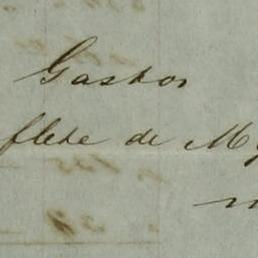 Gastos
flete de My